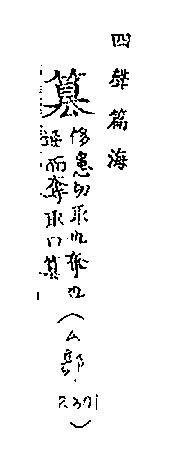 四聲篇海
篡 初患切取也奪也
逆而奪取曰篡
(厶部.
P.371)